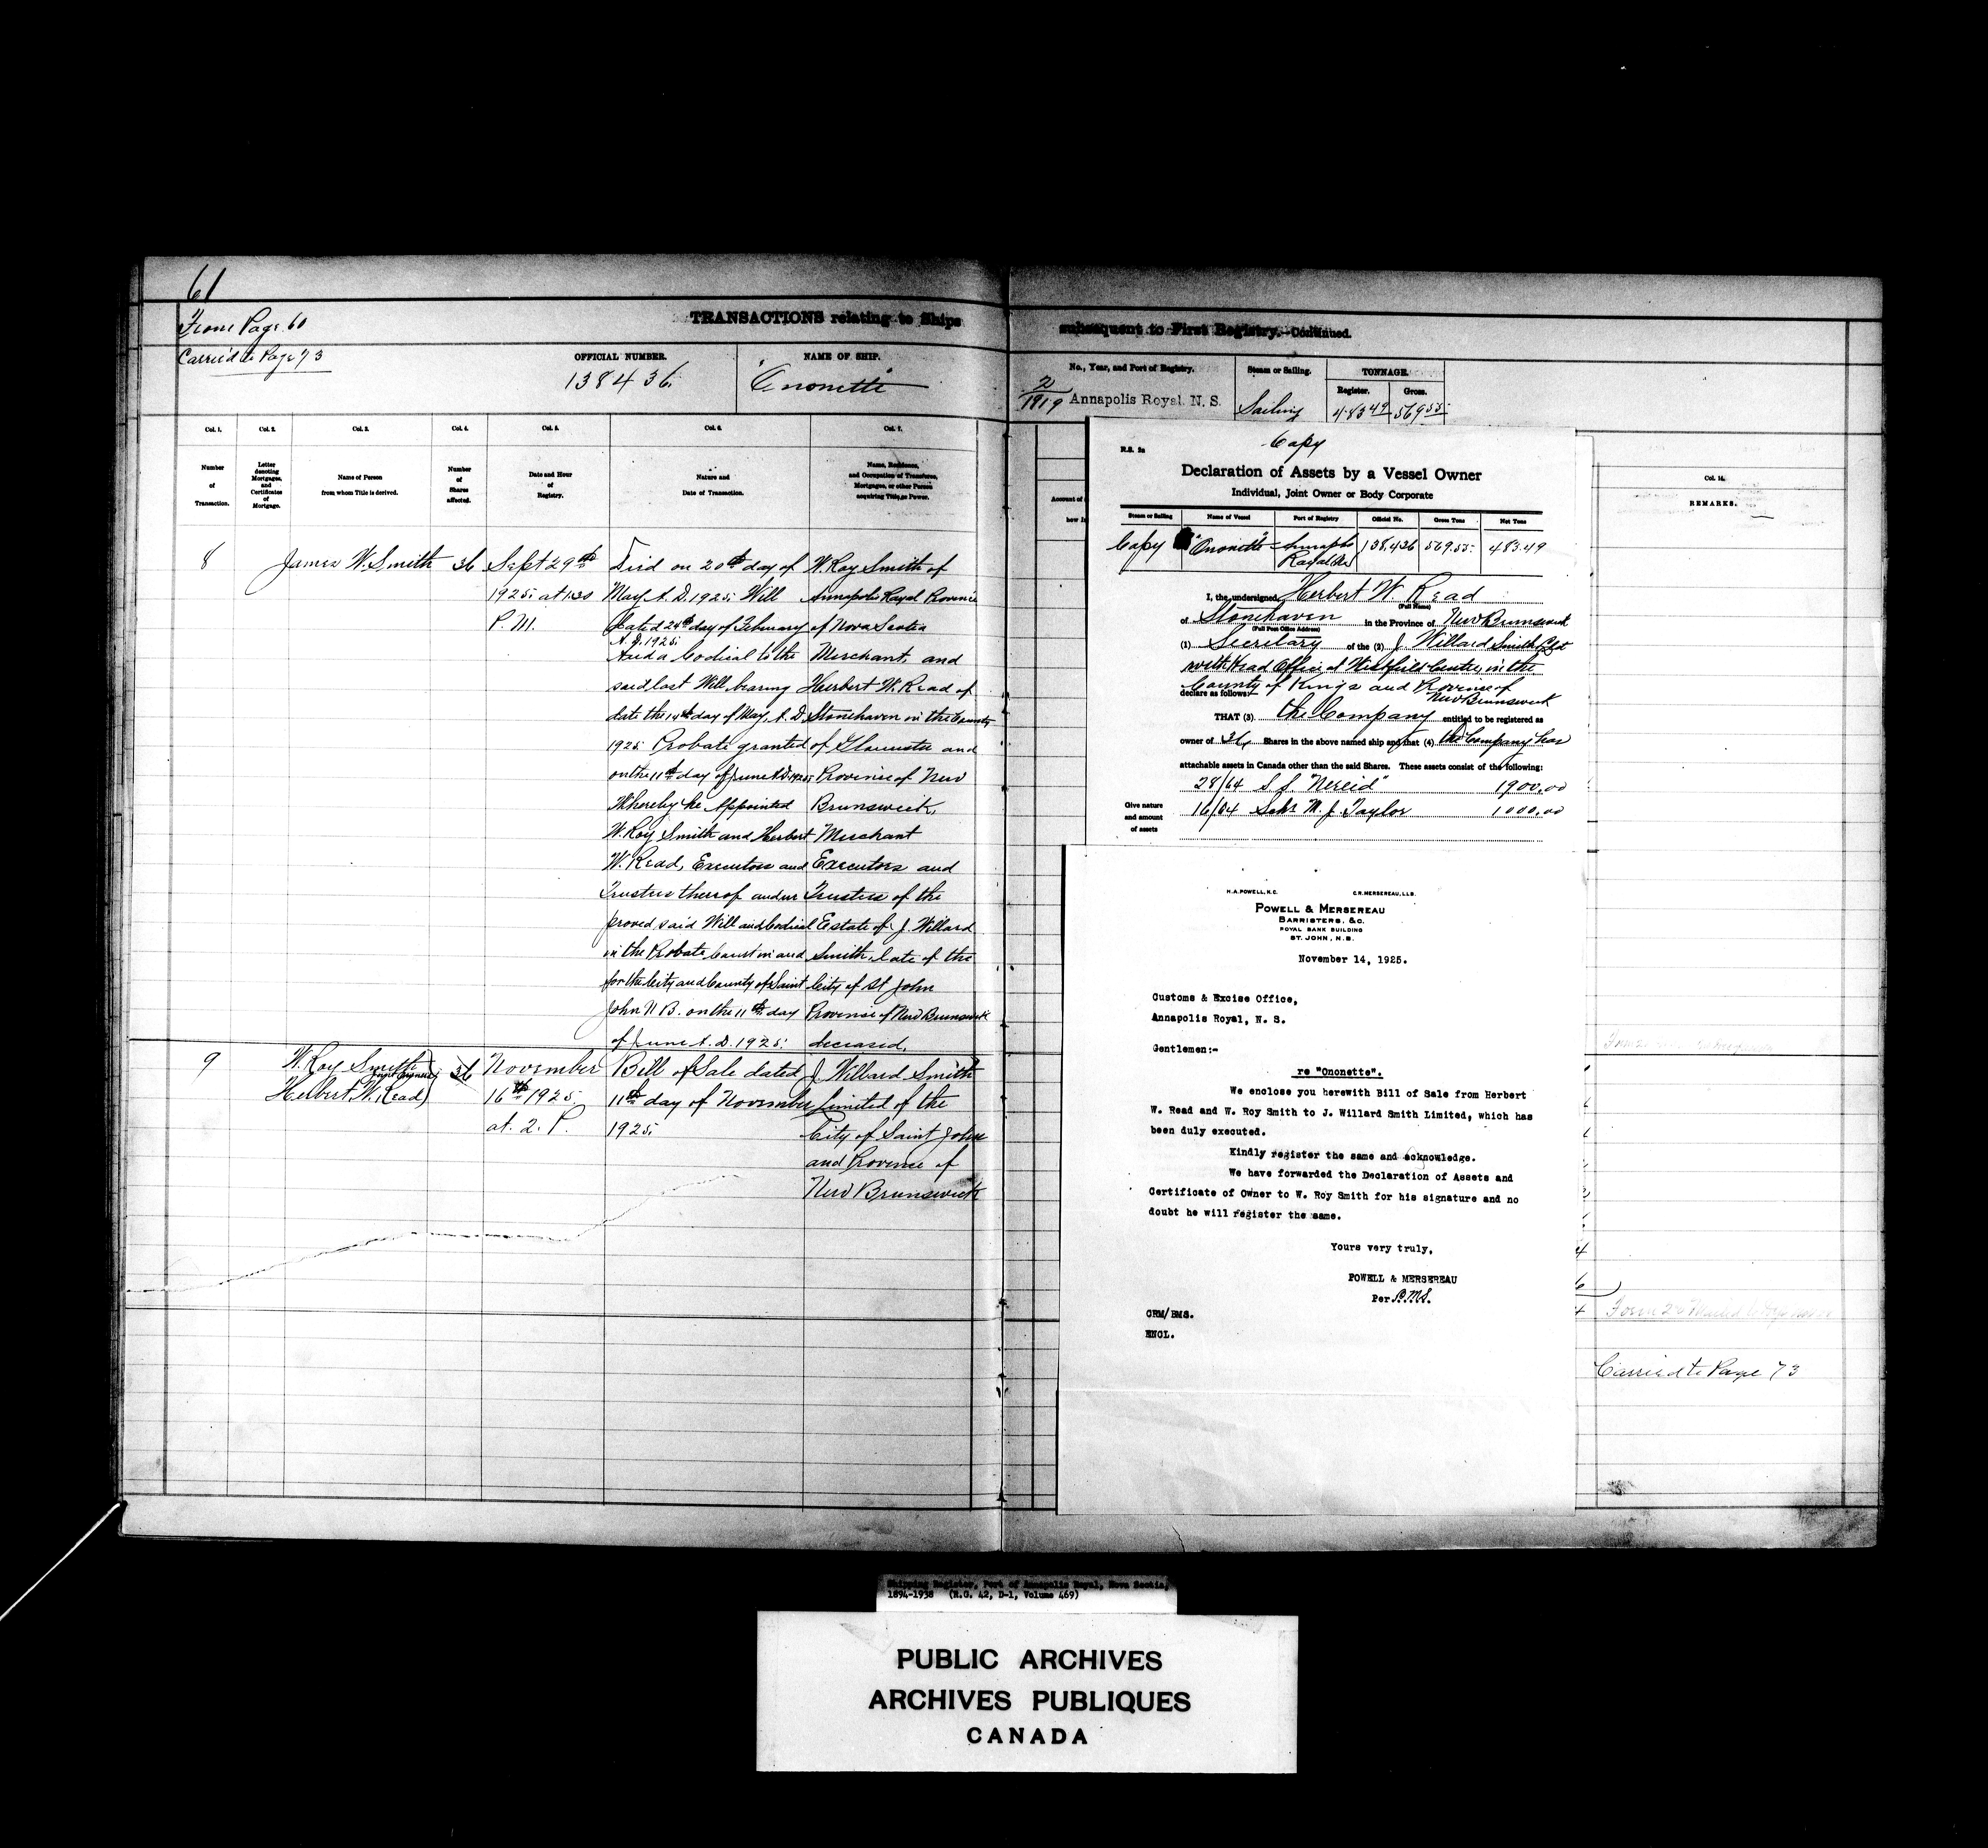 61
From Page 60
Carried to Page 73
TRANSACTIONS relating to Ships
subsequent to First Registry.—Continued.
OFFICIAL NUMBER.
138436
NAME OF SHIP.
"Ononette"
No., Year, and Port of Registry.
2/1919 Annapolis Royal. N. S.
Steam or Sailing.
Sailing
TONNAGE.
Register.
483.49
Gross.
569.55
Col. 1.
Number
of
Transaction.
Col. 2.
Letter
denoting
Mortgages,
and
Certificates
of
Mortgage.
Col. 3.
Name of Person
from whom Title is derived.
Col. 4.
Number
of
Shares
affected.
Col. 5.
Date and Hour
of
Registry.
Col. 6.
Nature and
Date of Transaction.
Col. 7.
Name, Residence,
and Occupation of Transferee,
Mortgagee, or other Person
acquiring Title or Power.
8
James W. Smith
36
Sept 29th
1925 at 1.30
P. M.
Died on 20th day of
May A. D. 1925. Will
dated 24th day of February
A. D. 1925.
And a Codical to the
said last Will, bearing
date the 14th day of May, A. D.
1925 Probate granted
on the 11th day of June A.D. 1925
Whereby he Appointed
W. Roy Smith and Herbert
W. Read, Executors and
Trustees therof
proved said Will and Codical
in the Probate Court in and
for the City and County of Saint
John N B. on the 11th day
of June A. D. 1925.
W. Roy Smith of
Annapolis Royal Province
of Nova Scotia
Merchant, and
Herbert W. Read of
Stonehaven in the County
of Gloucester and
Province of New
Brunswick,
Merchant
Executors and
Trustees of the
Estate of J. Willard
Smith, late of the
City of St John
Province of New Brunswick
deceased,
9
W. Roy Smith
Herbert W. Read
Joint Owners
36
November
16th 1925
at. 2. P.
Bill of Sale dated
11th day of November
1925.
J. Willard Smith
Limited of the
City of Saint John
and Province of
New Brunswick
Account of
how
Col. 14.
REMARKS.
Carried to Page 73
Copy
R.S. 2a
Declaration of Assets by a Vessel Owner
Individual, Joint Owner or Body Corporate
Steam or Sailing
Name of Vessel
Port of Registry
Official No.
Gross Tons
Net Tons
Copy
"Ononette"
Annapolis
Royal NS
138,436
569.55
483.49
I, the undersigned, Herbert W. Read
(Full Name)
of Stonehaven in the Province of New Brunswick
(Full Post Office Address)
(1) Secretary of the (2) J Willard Smith
with Head Office at Westfield Centre, in the
County of Kings and Province of
New Brunswick
declare as follows:—
THAT (3) the Company entitled to be registered as
owner of 36 Shares in the above named ship and that (4) the Company has
attachable assets in Canada other than the said Shares. These assets consist of the following:
Give nature
and amount
of assets
28/64 S S. "Nereid" 1900.00
16/64 Schr M. J. Taylor 1000.00
H.A. POWELL, K.C.
C.R. MERSEREAU, LL.B.
POWELL & MERSEREAU
BARRISTERS, &C.
ROYAL BANK BUILDING
ST. JOHN, N.B.
November 14, 1925.
Customs & Excise Office,
Annapolis Royal, N. S.
Gentlemen:-
re "Ononette".
We enclose you herewith Bill of Sale from Herbert
W. Read and W. Roy Smith to J. Willard Smith Limited, which has
been duly executed.
Kindly register the same and acknowledge.
We have forwarded the Declaration of Assets and
Certificate of Owner to W. Roy Smith for his signature and no
doubt he will register the same.
Yours very truly,
POWELL & MERSEREAU
Per
CRM/BMS.
ENCL.
Shipping Register, Port of Annapolis Royal, Nova Scotia,
1894-1938 (R.G. 42, D-1, Volume 469)
PUBLIC ARCHIVES
ARCHIVES PUBLIQUES
CANADA